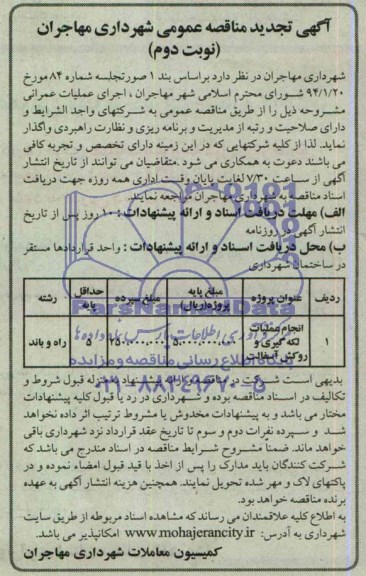 آگهی تجدید مناقصه عمومی شهرداری مهاجران
(نوبت دوم)
شهرداری مهاجران در نظر دارد براساس بند ۱ صورتجلسه شماره ۸۴ مورخ
۹۴/۱/۲۰ شورای محترم اسلامی شهر مهاجران ، اجرای عملیات عمرانی
مشروحه ذیل را از طریق مناقصه عمومی به شرکتهای واجد الشرایط و
دارای صلاحیت و رتبه از مدیریت و برنامه ریزی و نظارت راهبردی واگذار
نماید. لذا از کلیه شرکتهایی که در این زمینه دارای تخصص و تجربه کافی
می باشند دعوت به همکاری می شود .متقاضیان می توانند از تاریخ انتشار
آگهی از ساعت ۷/۳۰ لغایت پایان وقت اداری همه روزه جهت دریافت
اسناد مناقصه به شهرداری مهاجران مراجعه نمایند.
الف) مهلت دریافت اسناد و ارائه پیشنهادات : ۱۰ روز پس از تاریخ
انتشار آگهی در روزنامه
ب) محل دریافت اسناد و ارائه پیشنهادات : واحد قراردادها مستقر
در ساختمان شهرداری
ردیف عنوان پروژه مبلغ پایه پروژه(ریال) مبلغ سپرده حداقل پایه رشته
۱ انجام عملیات لکه گیری و روکش آسفالت ۵ راه و باند
ParsNamadData
پایگاه اطلاع رسانی مناقصه و مزایده
۰۲۱-۸۸۳۴۹۶۷۰-۵
بدیهی است شرکت در مناقصه و ارائه پیشنهاد به منزله قبول شروط و
تکالیف در اسناد مناقصه بوده و شهرداری در رد یا قبول کلیه پیشنهادات
مختار می باشد و به پیشنهادات مخدوش یا مشروط ترتیب اثر داده نخواهد
شد و سپرده نفرات دوم و سوم تا تاریخ عقد قرارداد نزد شهرداری باقی
خواهد ماند. ضمناً مشروح شرایط مناقصه در اسناد مندرج می باشد که
شرکت کنندگان باید مدارک را پس از اخذ با قید قبول امضاء نموده و در
پاکتهای لاک و مهر شده تحویل نمایند. همچنین هزینه انتشار آگهی به عهده
برنده مناقصه خواهد بود.
به اطلاع کلیه علاقمندان می رساند که مشاهده اسناد مربوطه از طریق سایت
شهرداری به آدرس: www.mohajerancity.ir امکانپذیر می باشد.
کمیسیون معاملات شهرداری مهاجران